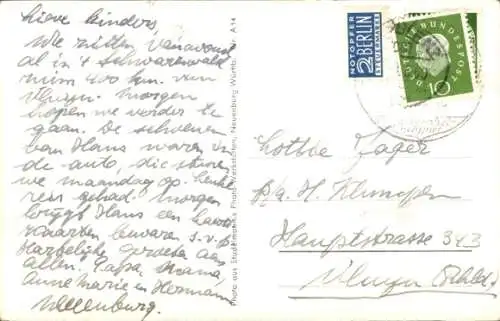 Lieve kinders,
We zitten vanavond
al in 't Schwarzwald
ruim 400 km. van
Vluyn. Morgen
hopen we verder te
gaan. De schoenen
van Hans waren in
de auto, die sturen
we maandag op.
reis gehad. Morgen
krijgt Hans een kaart
kaarten bewaren s.v.p.
Hartelijke groeten aan
allen. Papa, Mama,
Annemarie en Hermann
Photo aus Studio
Photo-Werkstätten, Neuenburg Württbg. A 14
NOTOPFER
2 BERLIN
STEUERMARKE
DEUTSCHE BUNDESPOST
10
Lotte Jager
p/a. H. Klumpen
Hauptstrasse 343
Vluyn